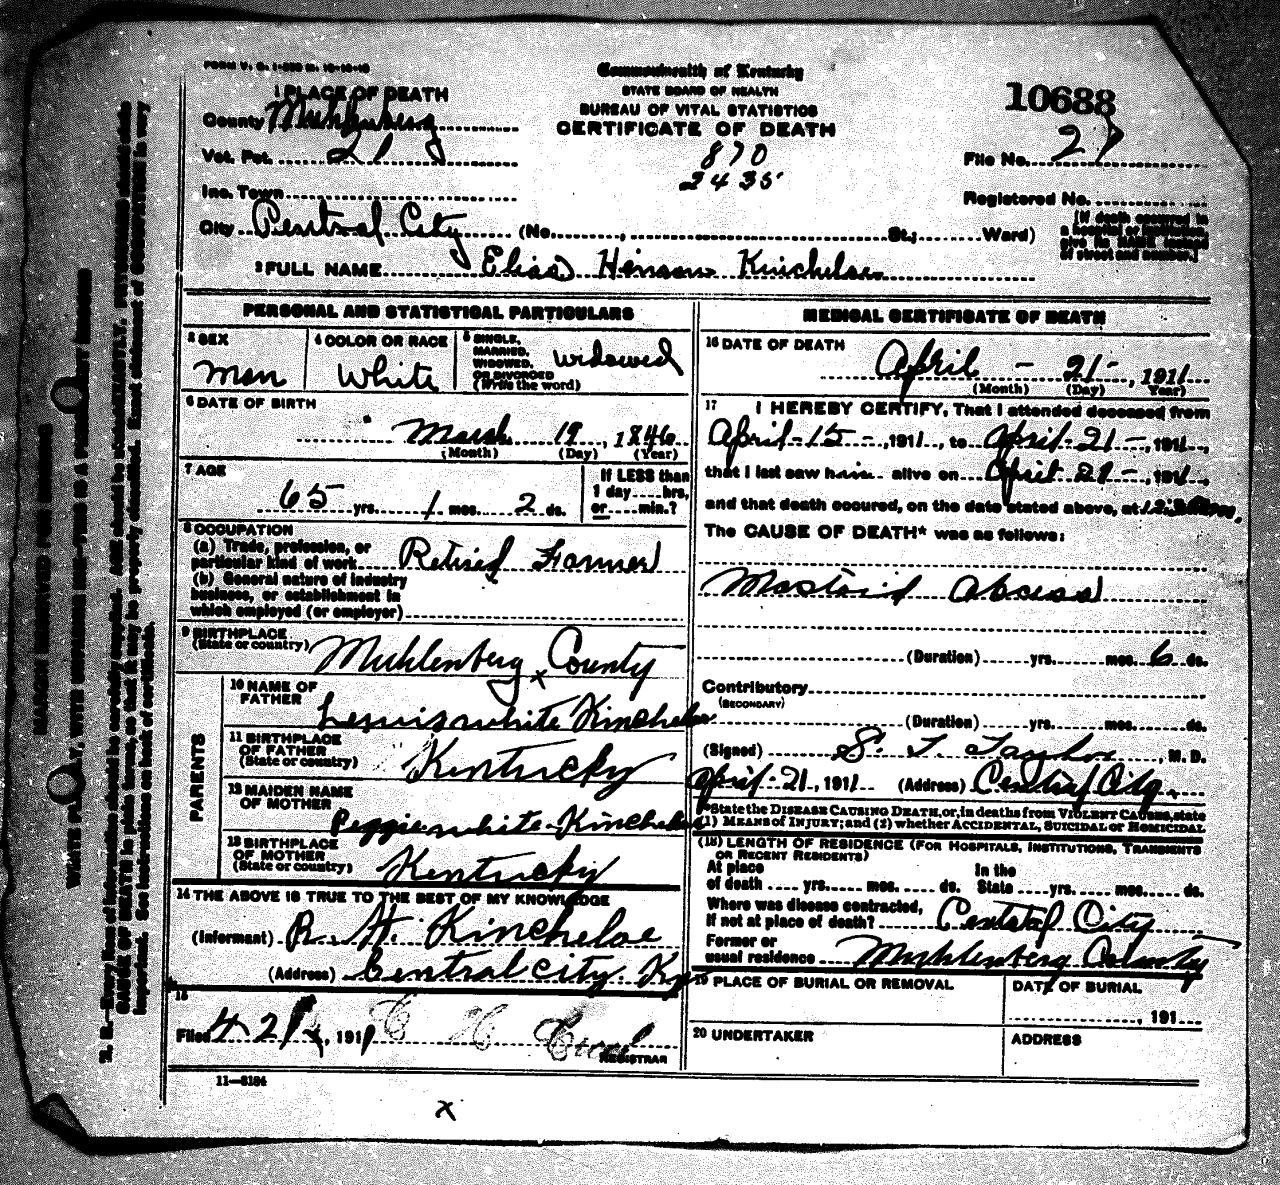 FORM V. S. 1-
Commonwealth of Kentucky
STATE BOARD OF HEALTH
BUREAU OF VITAL STATISTICS
CERTIFICATE OF DEATH
10688
1 PLACE OF DEATH
County Muhlenberg
Vot. Pct. 21
870
2435
File No. 27
Inc. Town
Registered No.
City Central City (No. , St.; Ward)
[If death occurred in
a hospital or institution,
give its NAME instead
of street and number.]
2 FULL NAME Elias Henson Kincheloe
PERSONAL AND STATISTICAL PARTICULARS
3 SEX
man
4 COLOR OR RACE
White
5 SINGLE,
MARRIED,
WIDOWED,
OR DIVORCED
(Write the word)
widowed
6 DATE OF BIRTH
March 19, 1846
(Month) (Day) (Year)
7 AGE
65 yrs. 1 mos. 2 ds.
If LESS than
1 day....hrs.
or....min.?
8 OCCUPATION
(a) Trade, profession, or
particular kind of work Retired Farmer
(b) General nature of industry
business, or establishment in
which employed (or employer)
9 BIRTHPLACE
(State or country) Muhlenberg x County
PARENTS
10 NAME OF
FATHER Lewis white Kincheloe
11 BIRTHPLACE
OF FATHER
(State or country) Kentucky
12 MAIDEN NAME
OF MOTHER Peggie white Kincheloe
13 BIRTHPLACE
OF MOTHER
(State or country) Kentucky
14 THE ABOVE IS TRUE TO THE BEST OF MY KNOWLEDGE
(Informant) R. H. Kincheloe
(Address) Central City Ky
15
Filed 4 21, 1911
REGISTRAR
11-3184
x
MEDICAL CERTIFICATE OF DEATH
16 DATE OF DEATH
April - 21 -, 1911
(Month) (Day) Year)
17 I HEREBY CERTIFY, That I attended deceased from
April-15-, 1911, to April-21-, 1911,
that I last saw him alive on April 21-, 1911,
and that death occured, on the date stated above, at 12
The CAUSE OF DEATH* was as follows:
Mastoid Abcess
(Duration) yrs. mos. 6 ds.
Contributory
(SECONDARY)
(Duration) yrs. mos. ds.
(Signed) S. T. Taylor, M. D.
April-21, 1911 (Address) Central City.
*State the DISEASE CAUSING DEATH, or, in deaths from VIOLENT CAUSES, state
(1) MEANS of INJURY; and (2) whether ACCIDENTAL, SUICIDAL or HOMICIDAL
(18) LENGTH OF RESIDENCE (FOR HOSPITALS, INSTITUTIONS, TRANSIENTS
OR RECENT RESIDENTS)
At place
of death yrs. mos. ds.
In the
State yrs. mos. ds.
Where was disease contracted,
if not at place of death? Central City
Former or
usual residence Muhlenberg County
19 PLACE OF BURIAL OR REMOVAL
DATE OF BURIAL
, 191
20 UNDERTAKER
ADDRESS
MARGIN RESERVED FOR BINDING
WRITE PLAINLY, WITH UNFADING INK—THIS IS A PERMANENT RECORD
N. B.—Every item of information should be carefully supplied. AGE should be stated EXACTLY. PHYSICIANS should state
CAUSE OF DEATH in plain terms, so that it may be properly classified. Exact statement of OCCUPATION is very
important. See instructions on back of certificate.